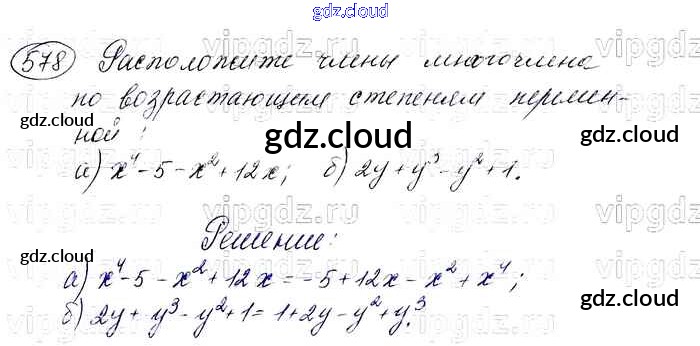 gdz.cloud
578 Расположите члены многочлена
по возрастающим степеням перемен-
ной:
gdz.cloud gdz.cloud gdz.cloud
а) x⁴-5-x²+12x; б) 2y+y³-y²+1.
vipgdz.ru vipgdz.ru vipgdz.ru
Решение:
gdz.cloud
а) x⁴-5-x²+12x=-5+12x-x²+x⁴;
gdz.cloud gdz.cloud
б) 2y+y³-y²+1=1+2y-y²+y³.
gdz.cloud